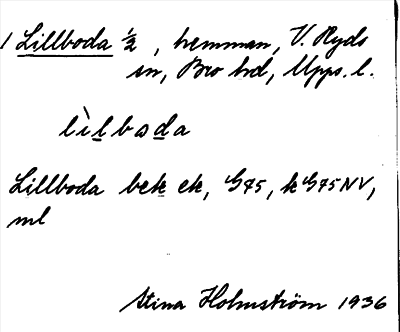 1 Lillboda ½, hemman, V. Ryds
sn, Bro hd, Upps. l.
lìlboda
Lillboda bek ek, G75, k G75NV,
ml
Stina Holmström 1936